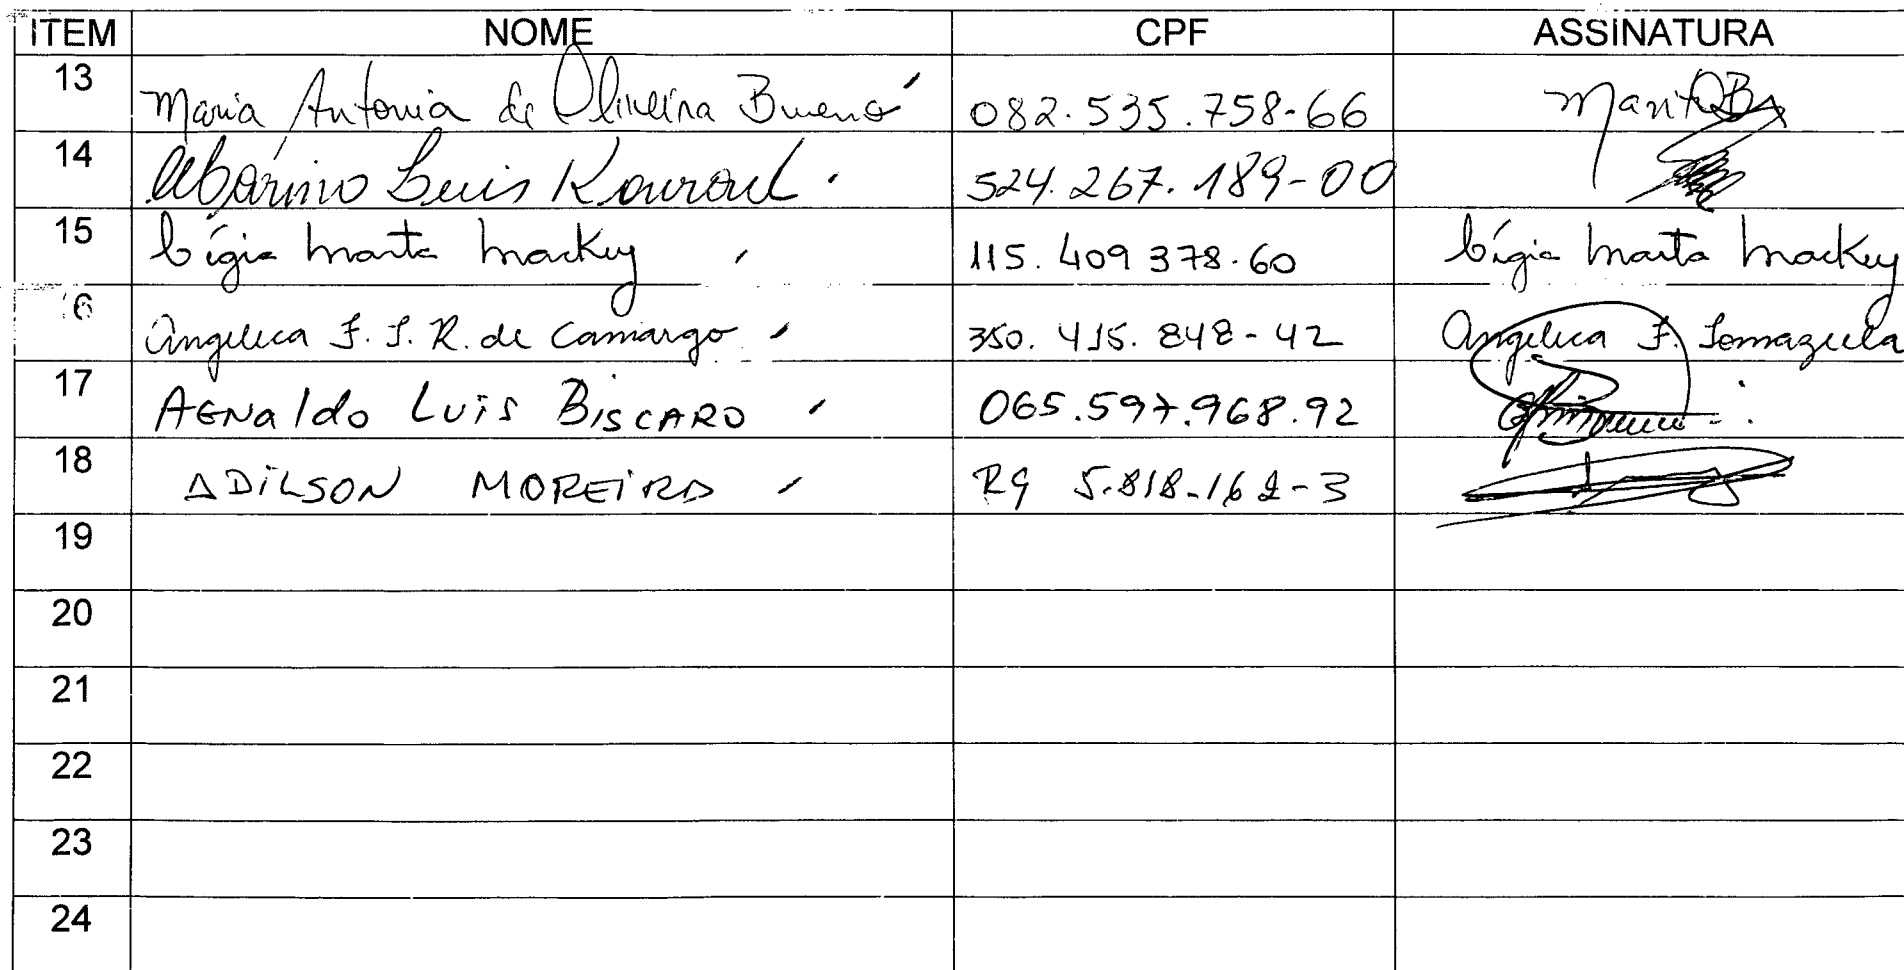 ITEM NOME CPF ASSINATURA
13 Maria Antonia de Oliveira Bueno 082.535.758-66
14 Luis 524.267.189-00
15 Lígia Marta Mackey 115.409 378-60 Lígia Marta Mackey
16 Angelica F. S. R. de Camargo 350.415.848-42 Angelica F.
17 AGNaldo Luis BISCARO 065.597.968.92
18 ADILSON MOREIRA RG 5.818.162-3
19
20
21
22
23
24